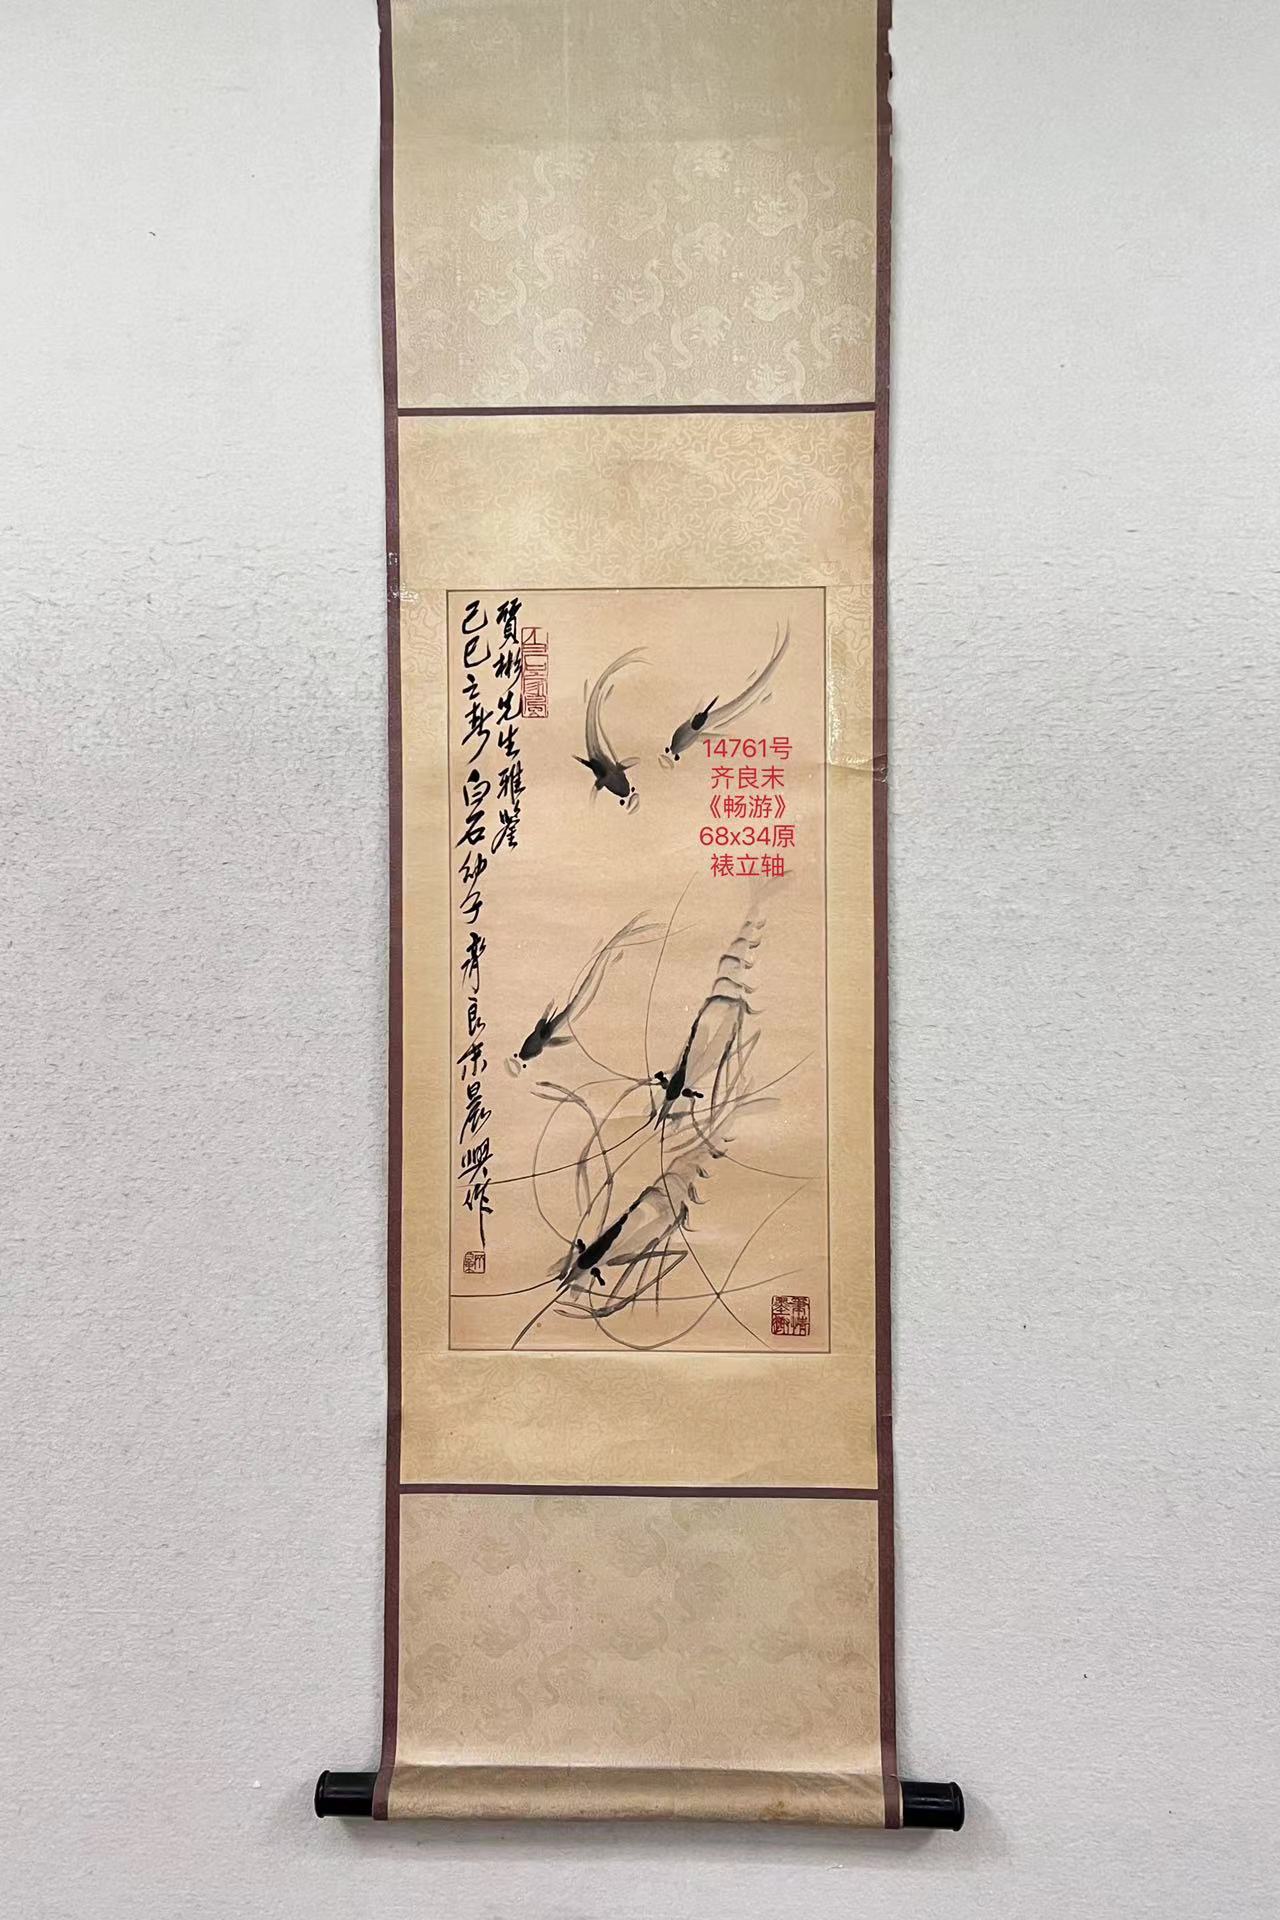 賢彬先生雅鑒
己巳之春白石幼子齊良末晨興作
14761号
齐良末
《畅游》
68x34原
裱立轴